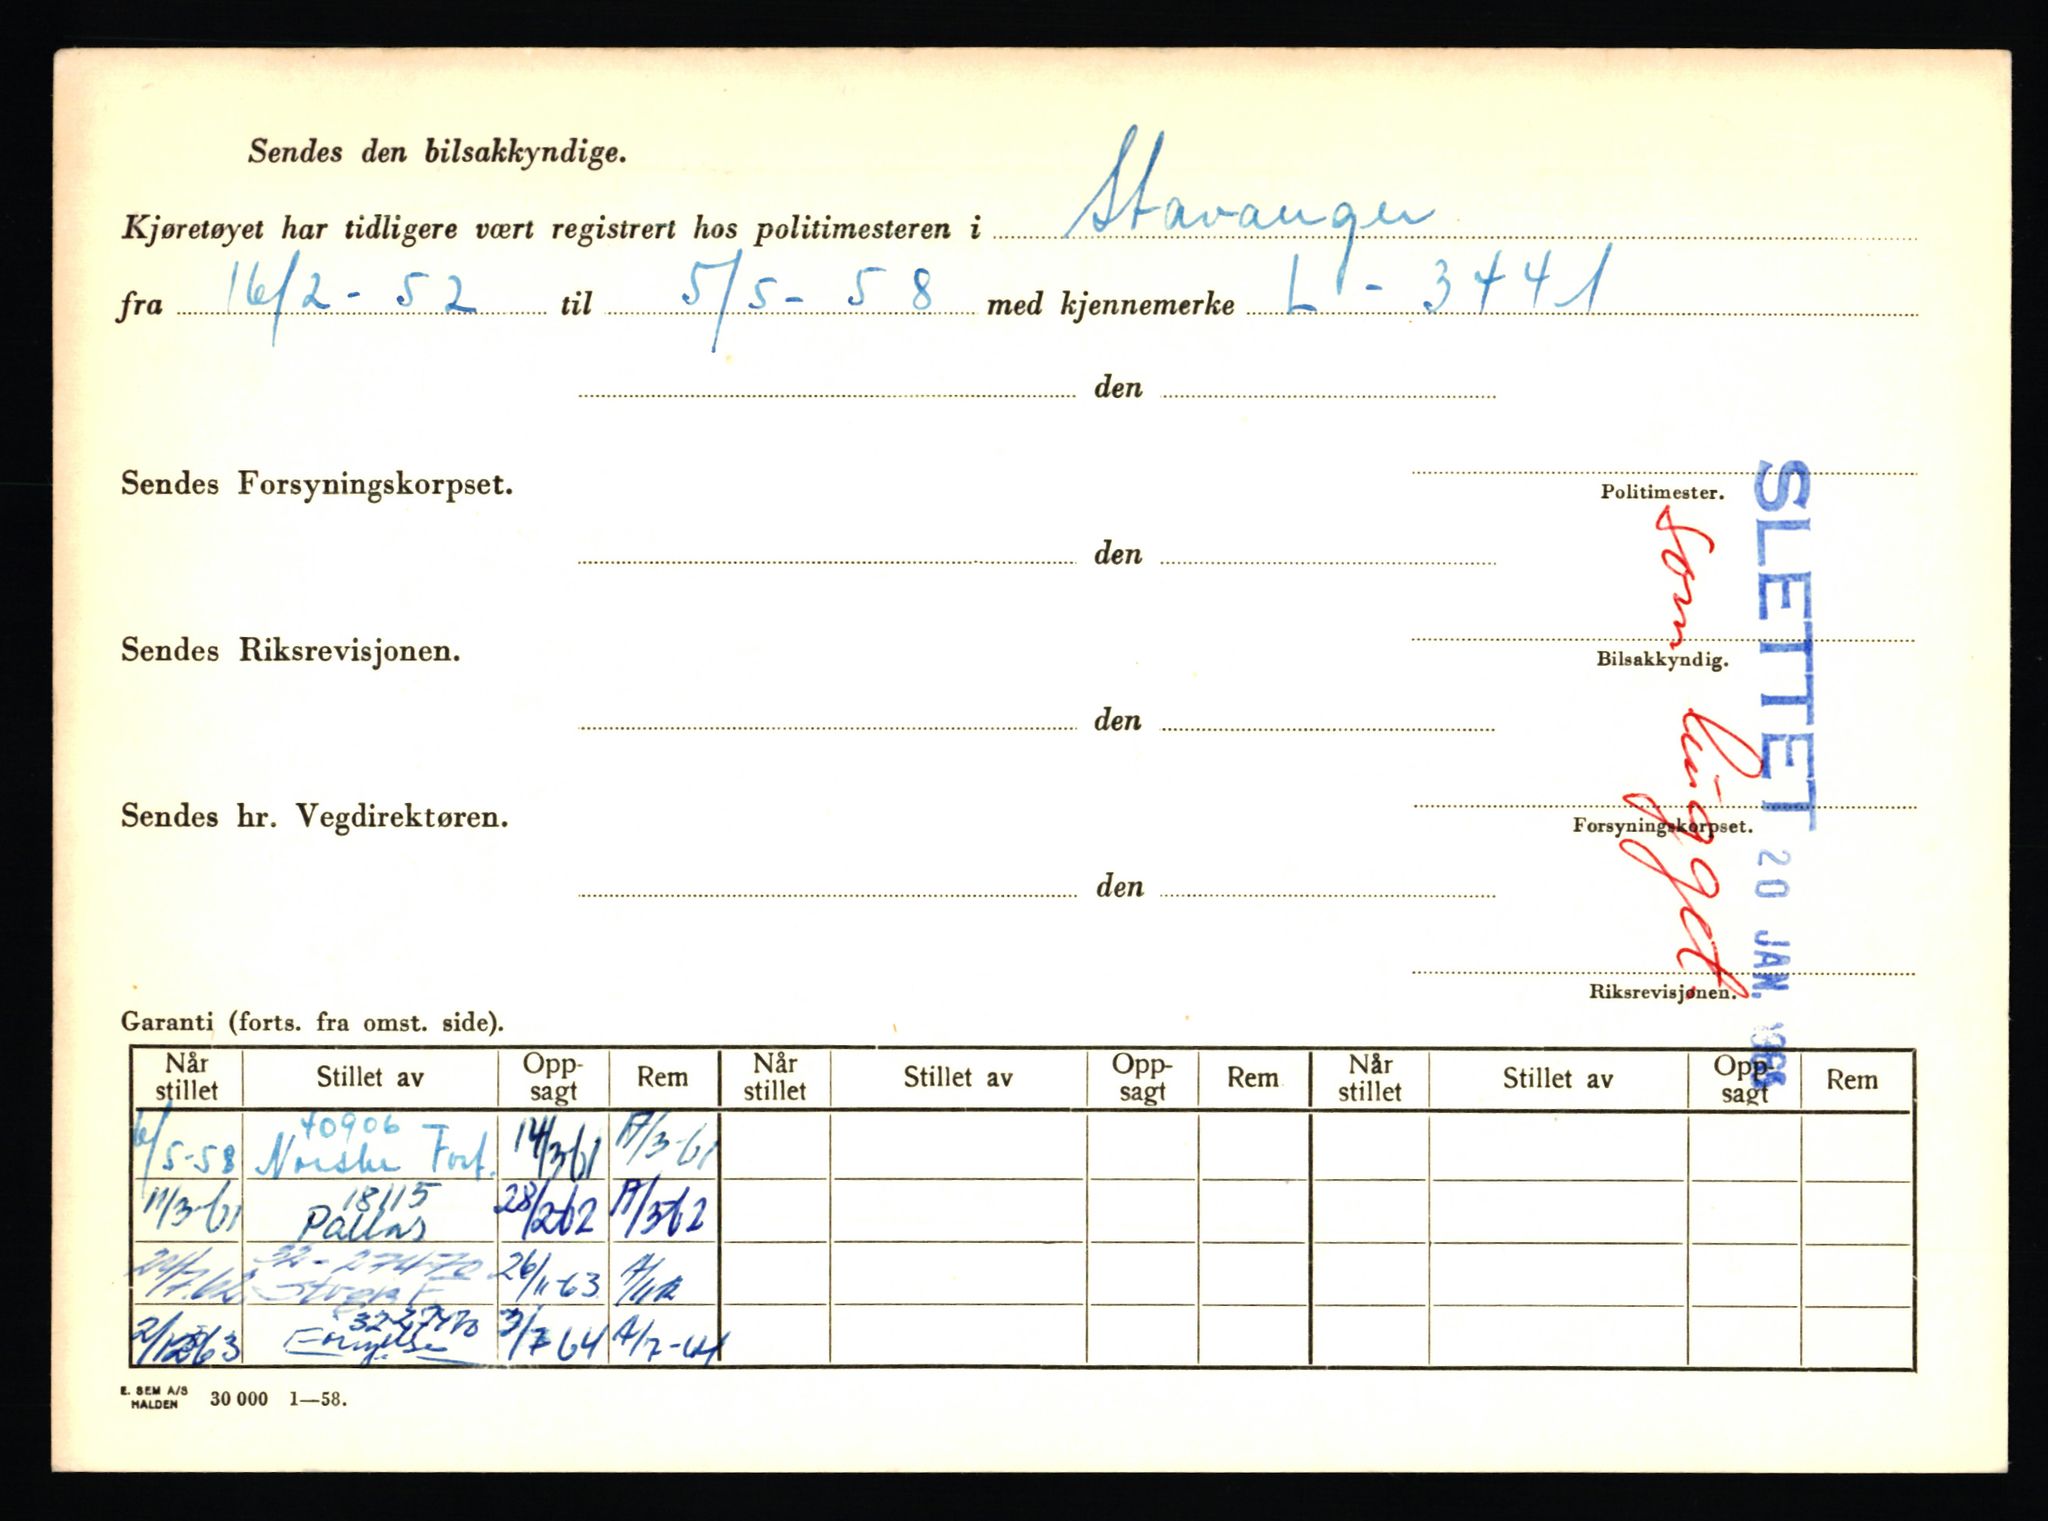 Sendes den bilsakkyndige.
Kjøretøyet har tidligere vært registrert hos politimesteren i Stavanger
fra 16/2-52 til 5/5-58 med kjennemerke L-3441
den
Sendes Forsyningskorpset.
Politimester.
den
Sendes Riksrevisjonen.
Bilsakkyndig.
den
Sendes hr. Vegdirektøren.
Forsyningskorpset.
den
Riksrevisjonen.
SLETTET 20 JAN. 1966
Som hugget.
Garanti (forts. fra omst. side).
Når stillet Stillet av Opp-sagt Rem Når stillet Stillet av Opp-sagt Rem Når stillet Stillet av Opp-sagt Rem
40906
6/5-58 Norske Forf. 14/3-61 A/3-61
18115
11/3-61 Pallas 28/2-62 A/3-62
32-27470
26/11-63
32-27470
2/12-63 Fornyelse 3/7 64 A/7-64
E. SEM A/S
HALDEN 30 000 1—58.